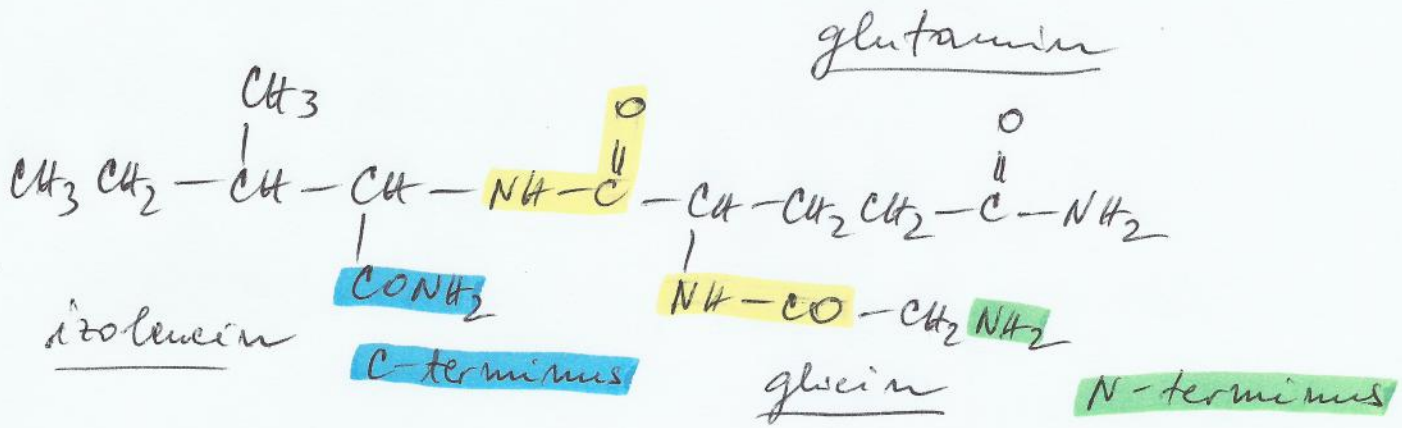 glutamin
CH3 O O
CH3 CH2 — CH — CH — NH — C — CH — CH2 CH2 — C — NH2
CONH2 NH — CO — CH2 NH2
izoleucin C-terminus glicin N-terminus